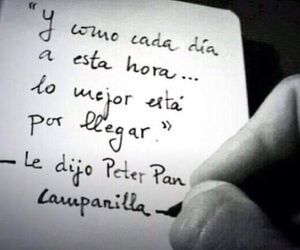 "Y como cada día
a esta hora...
lo mejor está
por llegar."
— Le dijo Peter Pan
Campanilla